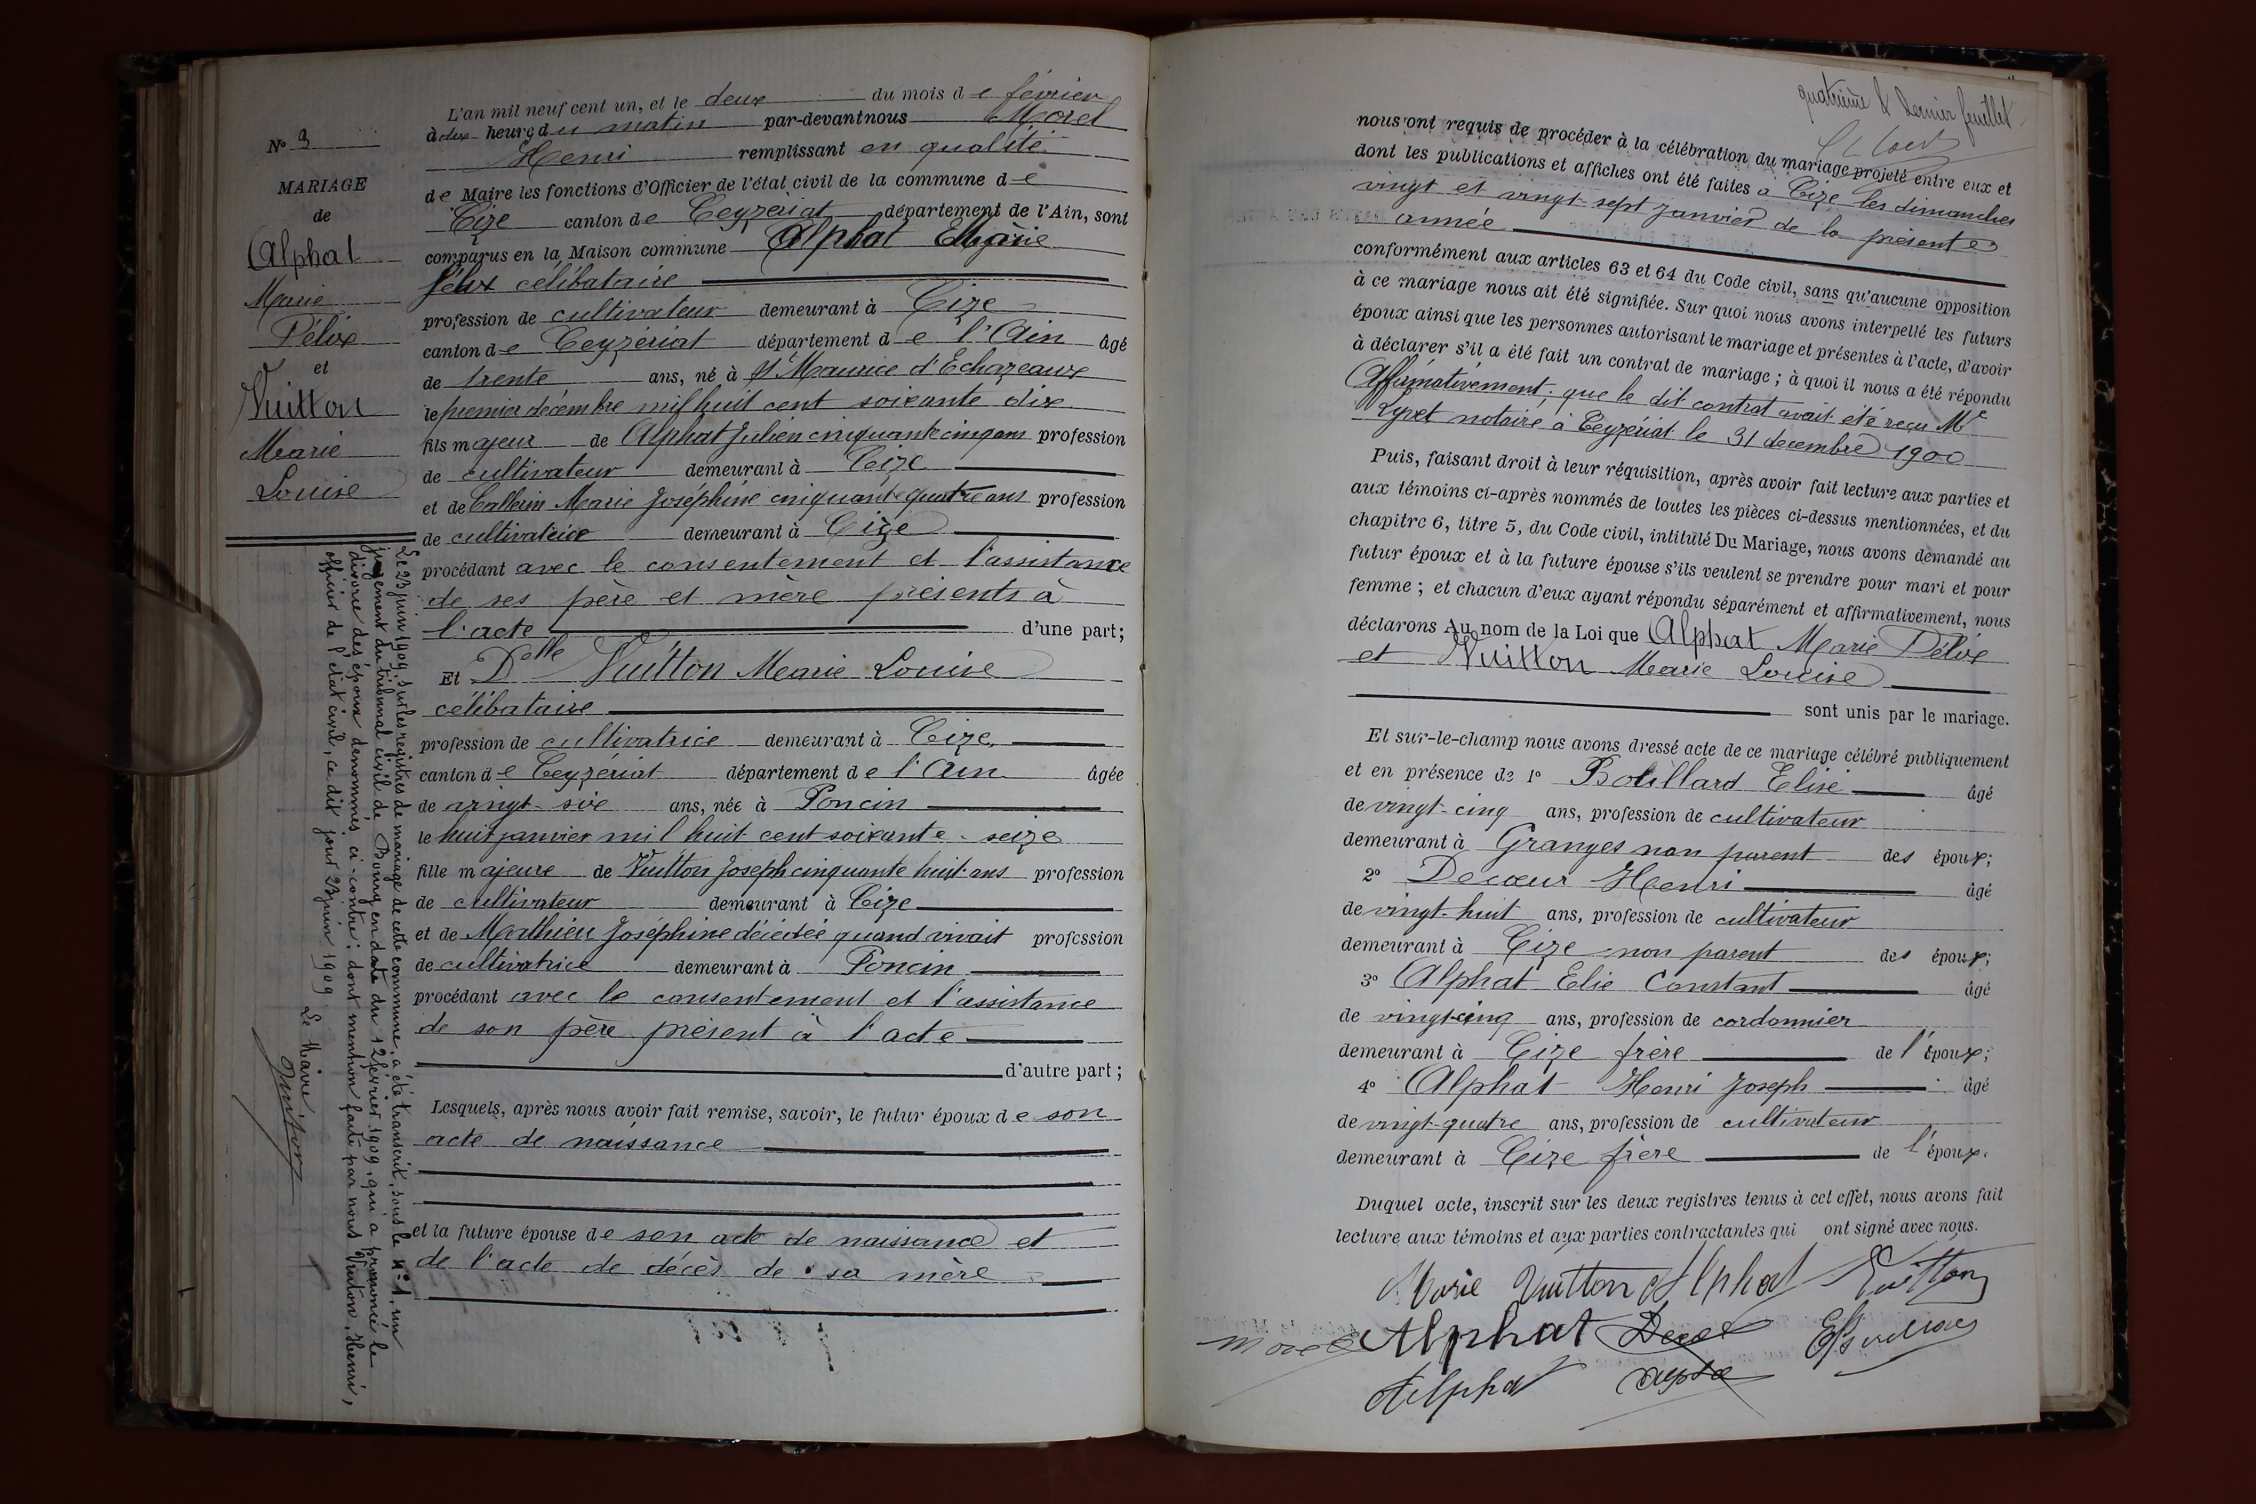 L'an mil neuf cent un, et le deux du mois de février
à dix heures du matin par-devant nous Morel
Henri remplissant en qualité
de Maire les fonctions d'Officier de l'état civil de la commune de
Cize canton de Ceyzériat département de l'Ain, sont
comparus en la Maison commune Alphat Marie
Félix célibataire
profession de cultivateur demeurant à Cize
canton de Ceyzériat département de l'Ain âgé
de trente ans, né à St Maurice d'Echazeaux
le premier décembre mil huit cent soixante dix
fils majeur de Alphat Julien cinquante cinq ans profession
de cultivateur demeurant à Cize
et de Marie Joséphine cinquante quatre ans profession
de cultivatrice demeurant à Cize
procédant avec le consentement et l'assistance
de ses père et mère présents à
l'acte d'une part;
Et Delle Vuitton Marie Louise
célibataire
profession de cultivatrice demeurant à Cize
canton de Ceyzériat département de l'Ain âgée
de vingt-six ans, née à Poncin
le huit janvier mil huit cent soixante-seize
fille majeure de Vuitton Joseph cinquante huit ans profession
de cultivateur demeurant à Cize
et de Mathieu Joséphine décédée quand vivait profession
de cultivatrice demeurant à Poncin
procédant avec le consentement et l'assistance
de son père présent à l'acte
d'autre part;
Lesquels, après nous avoir fait remise, savoir, le futur époux de son
acte de naissance
et la future épouse de son acte de naissance et
de l'acte de décès de sa mère
No 3
MARIAGE
de
Alphat
Marie
Félix
et
Vuitton
Marie
Louise
Le 23 juin 1909, sur les registres de mariage de cette commune, a été transcrit, sous le No 1, un
jugement du tribunal civil de Bourg, en date du 12 février 1909, qui a prononcé le
divorce des époux dénommés ci-contre; dont mention faite par nous Vuitton, Henri,
officier de l'état civil, ce dit jour 23 juin 1909
Le Maire
Vuitton
quatrième & dernier feuillet
nous ont requis de procéder à la célébration du mariage projeté entre eux et
dont les publications et affiches ont été faites à Cize les dimanches
vingt et vingt-sept janvier de la présente
année
conformément aux articles 63 et 64 du Code civil, sans qu'aucune opposition
à ce mariage nous ait été signifiée. Sur quoi nous avons interpellé les futurs
époux ainsi que les personnes autorisant le mariage et présentes à l'acte, d'avoir
à déclarer s'il a été fait un contrat de mariage; à quoi il nous a été répondu
Affirmativement: que le dit contrat avait été reçu Me
notaire à Ceyzériat le 31 décembre 1900
Puis, faisant droit à leur réquisition, après avoir fait lecture aux parties et
aux témoins ci-après nommés de toutes les pièces ci-dessus mentionnées, et du
chapitre 6, titre 5, du Code civil, intitulé Du Mariage, nous avons demandé au
futur époux et à la future épouse s'ils veulent se prendre pour mari et pour
femme; et chacun d'eux ayant répondu séparément et affirmativement, nous
déclarons Au nom de la Loi que Alphat Marie Félix
et Vuitton Marie Louise
sont unis par le mariage.
Et sur-le-champ nous avons dressé acte de ce mariage célébré publiquement
et en présence de 1o Bouillard Elisé âgé
de vingt-cinq ans, profession de cultivateur
demeurant à Granges non parent des époux;
2o Decœur Henri âgé
de vingt-huit ans, profession de cultivateur
demeurant à Cize non parent des époux;
3o Alphat Elie Constant âgé
de vingt-cinq ans, profession de cordonnier
demeurant à Cize frère de l'époux;
4o Alphat Henri Joseph âgé
de vingt-quatre ans, profession de cultivateur
demeurant à Cize frère de l'époux.
Duquel acte, inscrit sur les deux registres tenus à cet effet, nous avons fait
lecture aux témoins et aux parties contractantes qui ont signé avec nous.
Marie Vuitton Alphat Vuitton
Morel Alphat
Alphat